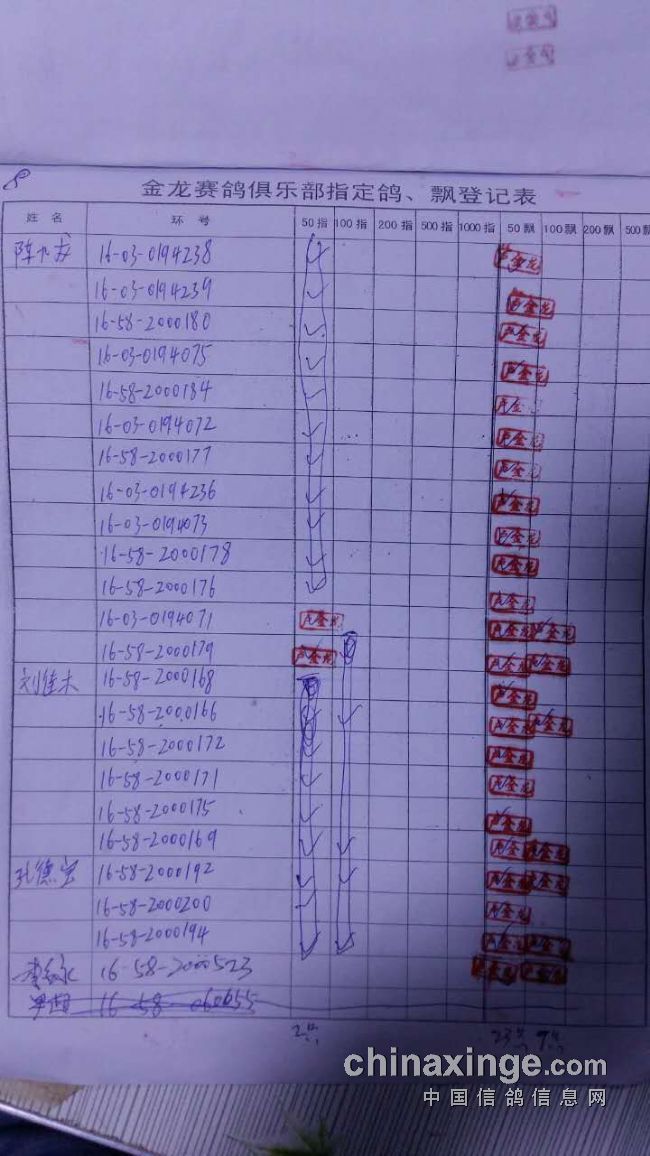 8
金龙赛鸽俱乐部指定鸽、飘登记表
姓 名 环 号 50指 100指 200指 500指 1000指 50飘 100飘 200飘 500飘
16-03-0194238 卢金龙
16-03-0194239 卢金龙
16-58-2000180 卢金龙
16-03-0194075 卢金龙
16-58-2000184 卢金
16-03-0194072 卢金龙
16-58-2000177 卢金龙
16-03-0194236 卢金龙
16-03-0194073 卢金龙
16-58-2000178 卢金龙
16-58-2000176 卢金龙
16-03-0194071 卢金龙 卢金龙 卢金龙
16-58-2000179 卢金龙 卢金龙 卢金龙
刘佳木 16-58-2000168 卢金龙
16-58-2000166 卢金龙 卢金龙
16-58-2000172 卢金龙
16-58-2000171 卢金龙
16-58-2000175 卢金龙
16-58-2000169 卢金龙 卢金龙
孔德宝 16-58-2000192 卢金龙 卢金龙
16-58-2000200 卢金龙
16-58-2000194 卢金龙 卢金龙
16-58-2000523 卢金龙 卢金龙
16-58-060655
chinaxinge.com
中国信鸽信息网